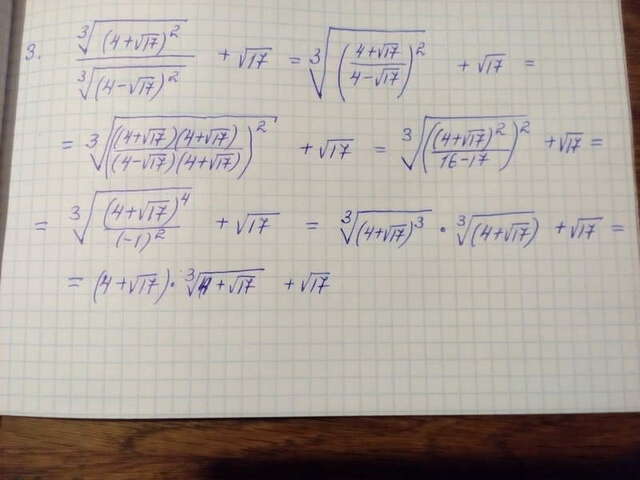 3. ∛(4+√17)² / ∛(4-√17)² + √17 = ∛((4+√17)/(4-√17))² + √17 =
= ∛((4+√17)(4+√17)/(4-√17)(4+√17))² + √17 = ∛((4+√17)²/16-17)² + √17 =
= ∛(4+√17)⁴/(-1)² + √17 = ∛(4+√17)³ · ∛(4+√17) + √17 =
= (4+√17) · ∛4+√17 + √17